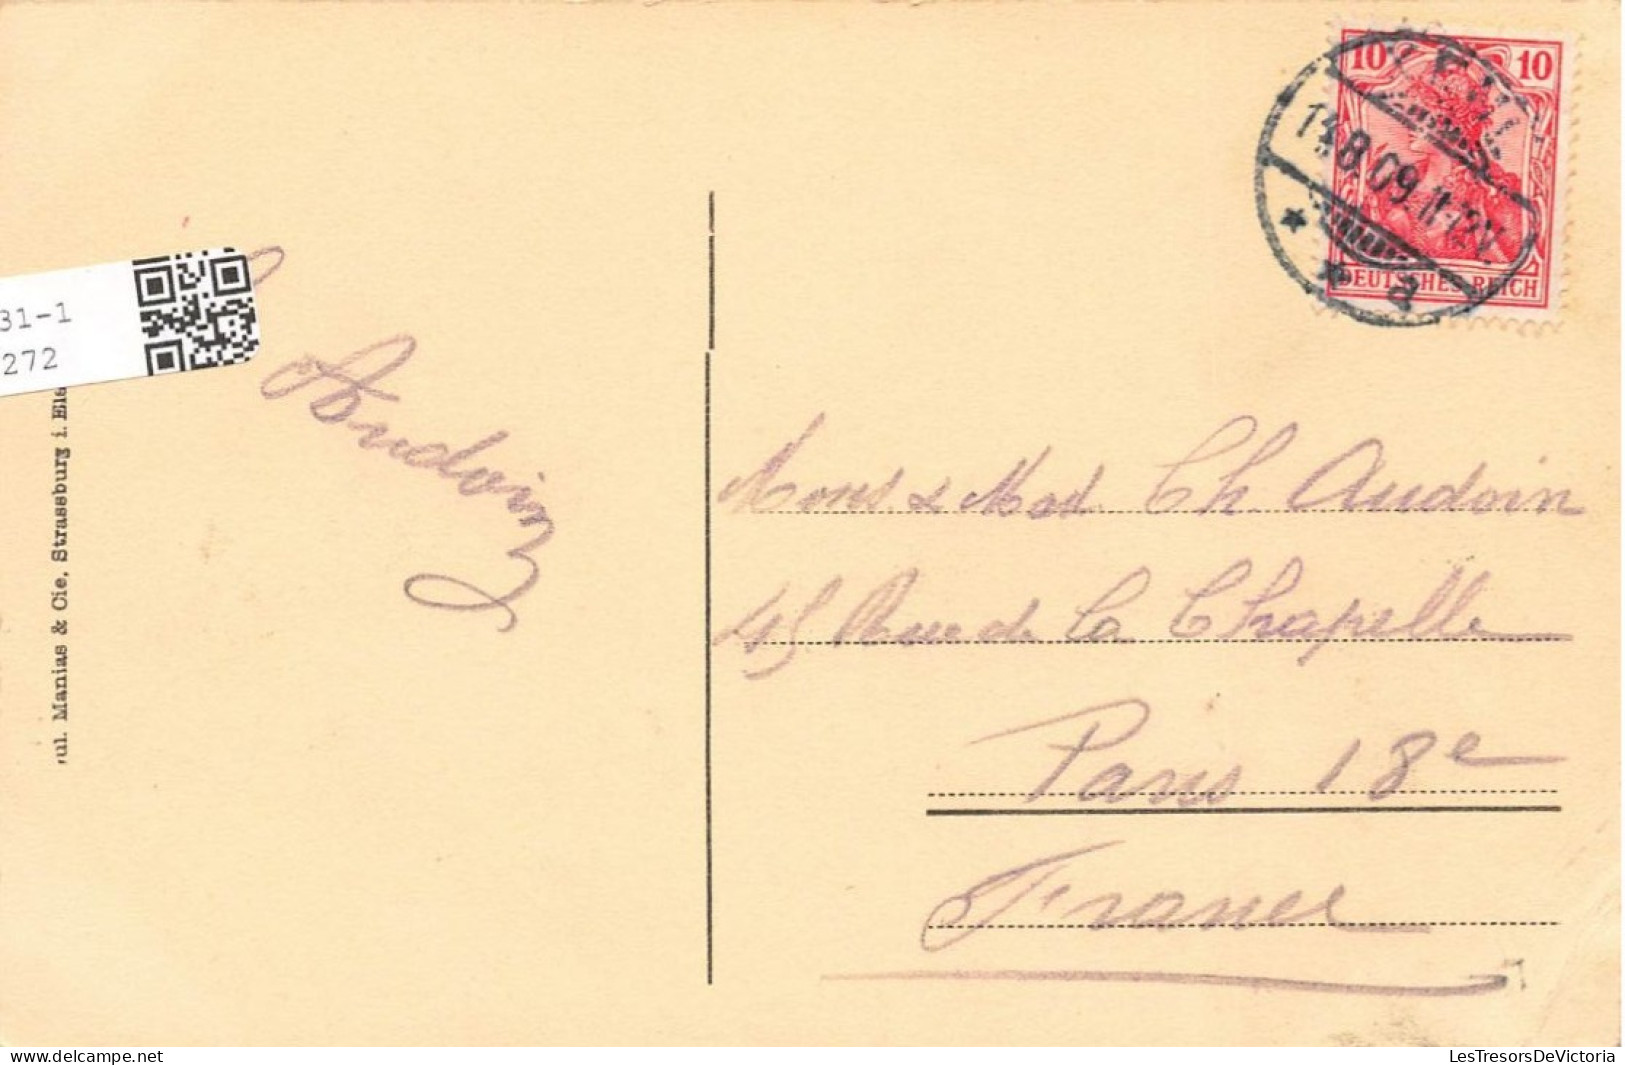 10 10
14.8.09.11-12V.
* * a
DEUTSCHES REICH
31-1
272
Jul. Manias & Cie, Strassburg i. Els
Audoin
Mons & Mad. Ch. Audoin
45 Rue de la Chapelle
Paris 18e
France
LesTresorsDeVictoria